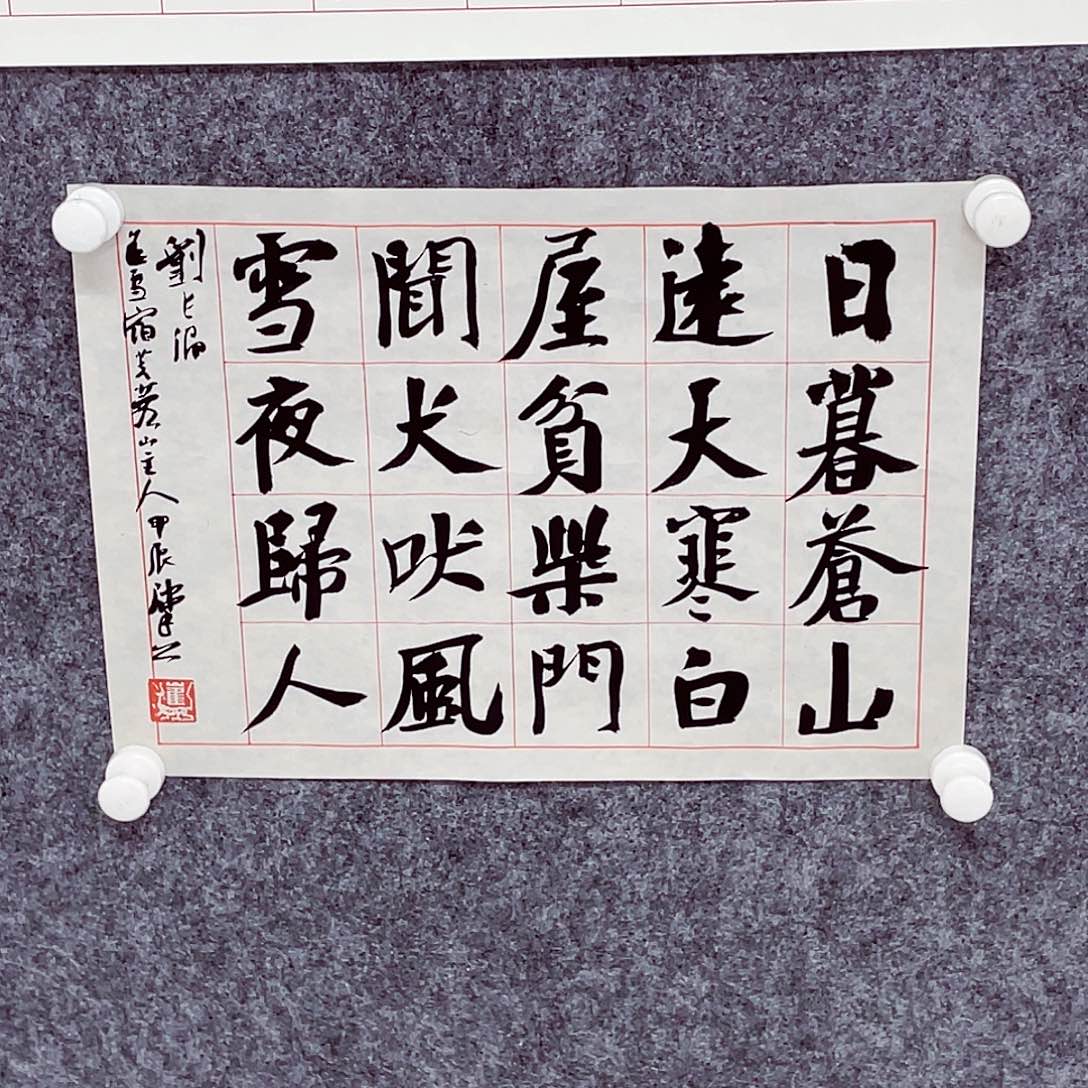 日暮蒼山
遠天寒白
屋貧柴門
聞犬吠風
雪夜歸人
劉長卿
逢雪宿芙蓉山主人甲辰